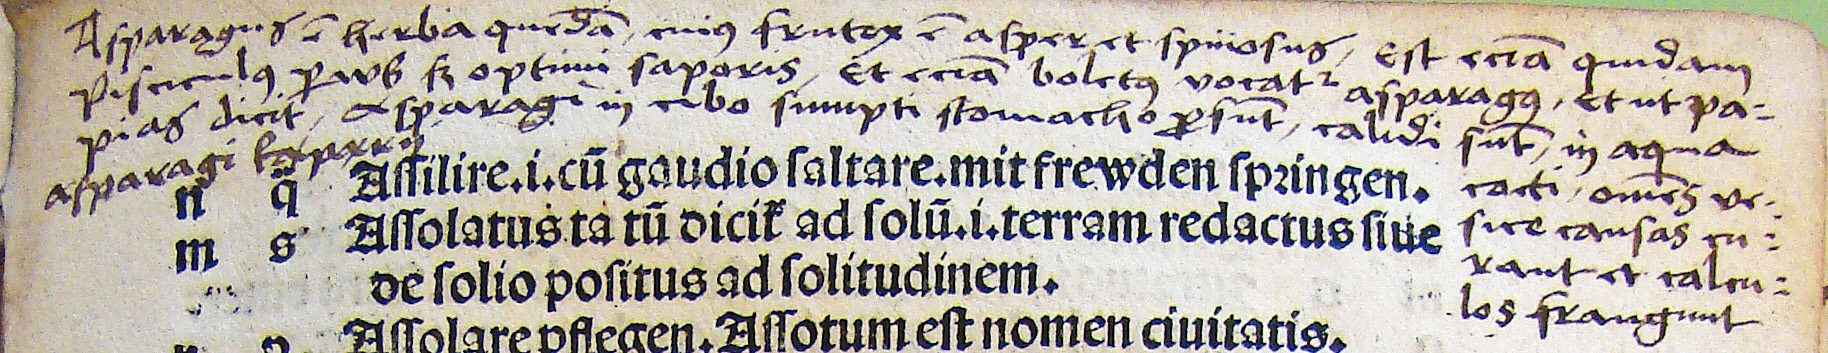 Asparagus ē herba quedā, cuiꝰ frutex ē asper et spinosus, Est eciā quidam
pisciculꝰ parvus sꝫ optimi saporis, Et eciā boletꝰ vocatr asparagꝰ, Et ut pa-
pias dicit, Asparagi in cibo sumpti stomacho ꝓsūt, calidi sūt, in aqua
asparagi
cocti, omēs ve-
sice causas cu-
rant et calcu-
los frangunt
n q̄ Aſſilire.i.cū gaudio ſaltare.mit frewden ſpꝛingen.
m s Aſſolatus ta tū dicit̄ ad ſolū.i.terram redactus ſiue
de ſolio poſitus ad ſolitudinem.
Aſſolare pflegen. Aſſotum eſt nomen ciuitatis.